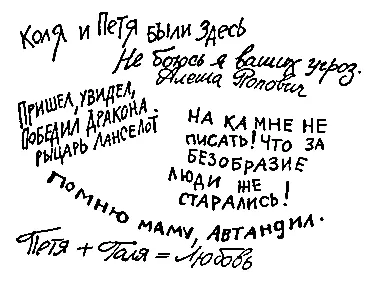 Коля и Петя были здесь
Не боюсь я ваших угроз.
Алеша Попович
Пришел, увидел,
победил дракона.
рыцарь Ланселот
НА КАМНЕ НЕ
ПИСАТЬ! ЧТО ЗА
БЕЗОБРАЗИЕ
ЛЮДИ ЖЕ
СТАРАЛИСЬ!
Помню маму, Автандил.
Петя + Галя = Любовь